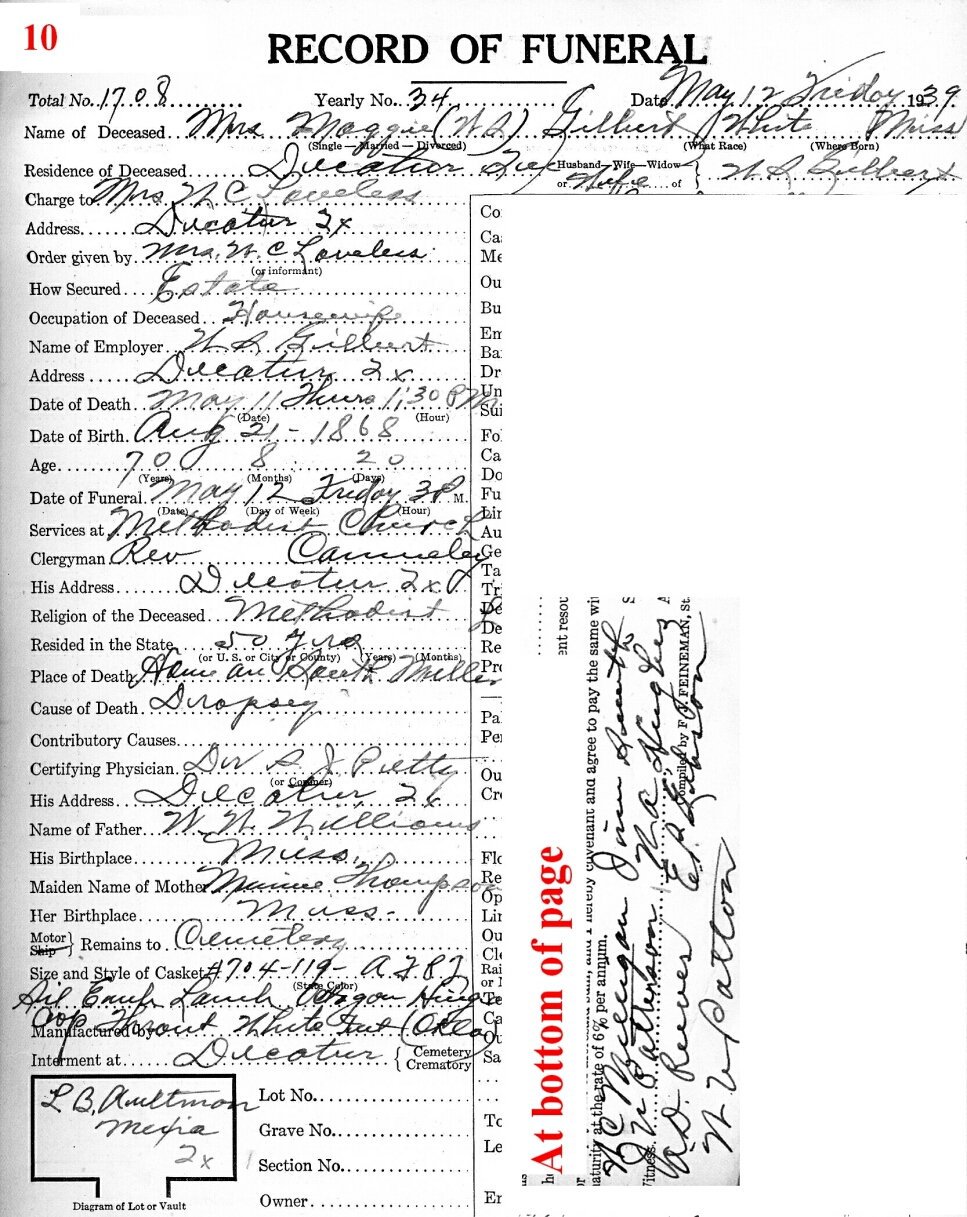 10
RECORD OF FUNERAL
Total No. 1708 Yearly No. 34 Date May 12 Friday 1939
Name of Deceased Mrs Maggie (W.S.) Gilbert White Miss
(Single — Married — Divorced) (What Race) (Where Born)
Residence of Deceased Decatur Tex Husband—Wife—Widow or Wife of } W S Gilbert
Charge to Mrs W C Loveless
Address Decatur Tx
Order given by Mrs. W. C Loveless
(or informant)
How Secured Estate
Occupation of Deceased Housewife
Name of Employer W S Gilbert
Address Decatur Tx
Date of Death May 11 Thurs 1:30 PM
(Date) (Hour)
Date of Birth Aug 21 - 1868
Age 70 8 20
(Years) (Months) (Days)
Date of Funeral May 12 Friday 3 P M.
(Date) (Day of Week) (Hour)
Services at Methodist Church
Clergyman Rev
His Address Decatur Tx
Religion of the Deceased Methodist
Resided in the State 50 yrs
(or U. S. or City or County) (Years) (Months)
Place of Death Home on South Miller
Cause of Death Dropsey
Contributory Causes
Certifying Physician Dr S J Petty
(or Coroner)
His Address Decatur Tx
Name of Father W. W Williams
His Birthplace Miss.
Maiden Name of Mother Thompson
Her Birthplace Miss-
Motor Ship } Remains to Cemetery
Size and Style of Casket #704-119-
(State Color)
Sil Octagon
Manufactured by White
Interment at Decatur { Cemetery Crematory
L B. Aultman
Mexia
Tx
Lot No.
Grave No.
Section No.
Owner
Diagram of Lot or Vault
Co
Ca
Me
Ou
Bu
Em
Ba
Dr
Un
Sui
Fo
Ca
Do
Fu
Lin
Au
Ge
Ta
Tr
De
De
Re
Pro
Pa
Per
Ou
Cre
Flo
Re
Op
Lin
Ou
Cle
Rai
or M
Te
Ca
Ou
Sa
To
Le
En
At bottom of page
ent resou
and I hereby covenant and agree to pay the same wi
aturity at the rate of 6% per annum.
W C Milligan Jim Smith
J W Patterson W A Hughes
Witness
Compiled by F. J. FEINEMAN, St.
A.D. Reeves
W W Patton